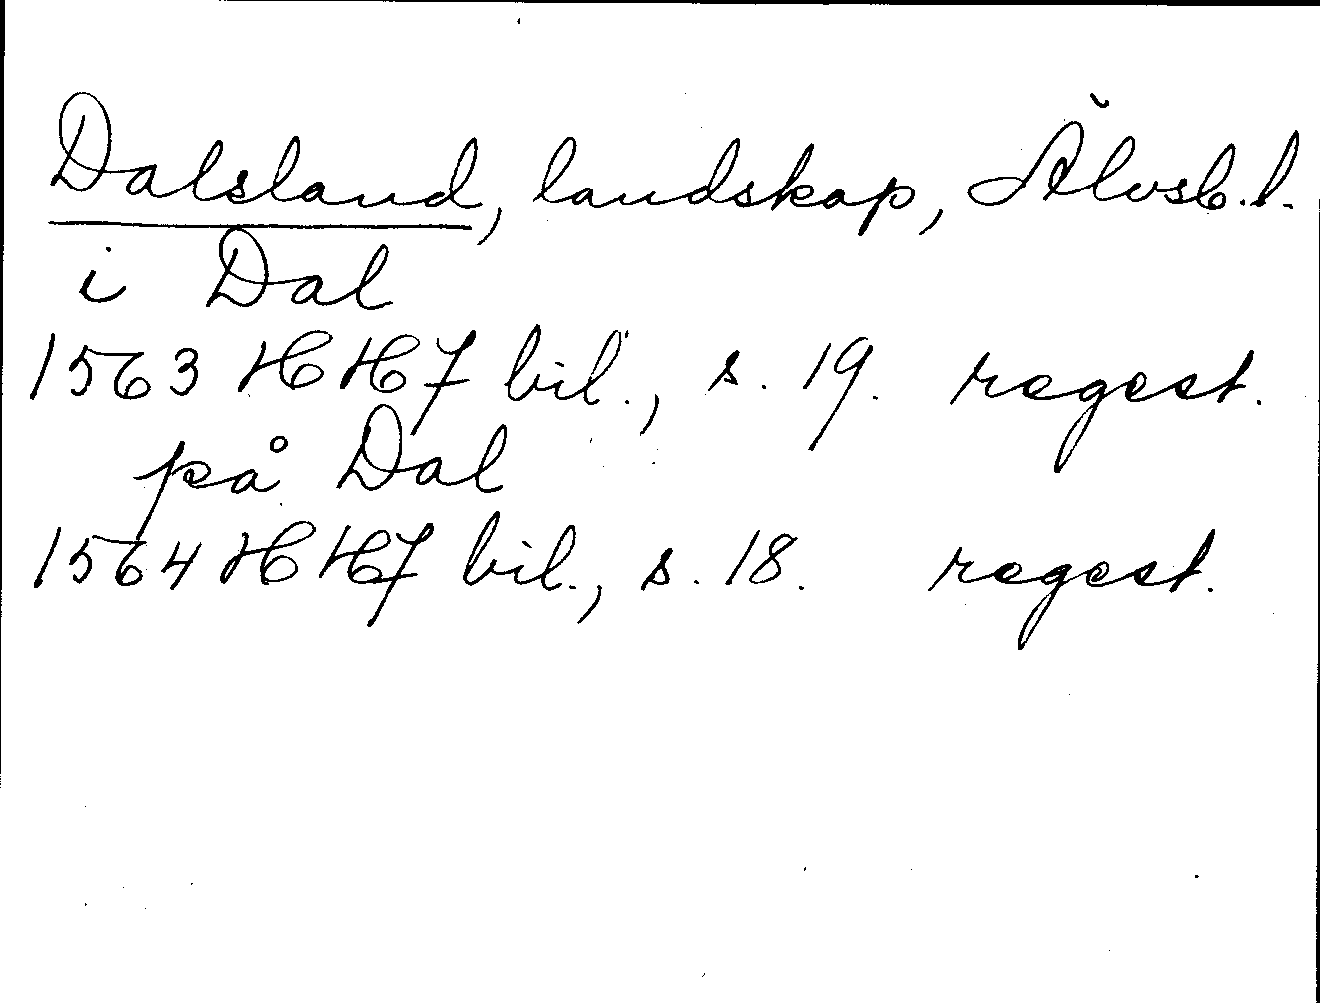 Dalsland, landskap, Älvsb. l.
i Dal
1563 HH7 bil., s. 19. regest.
på Dal
1564 HH7 bil., s. 18. regest.